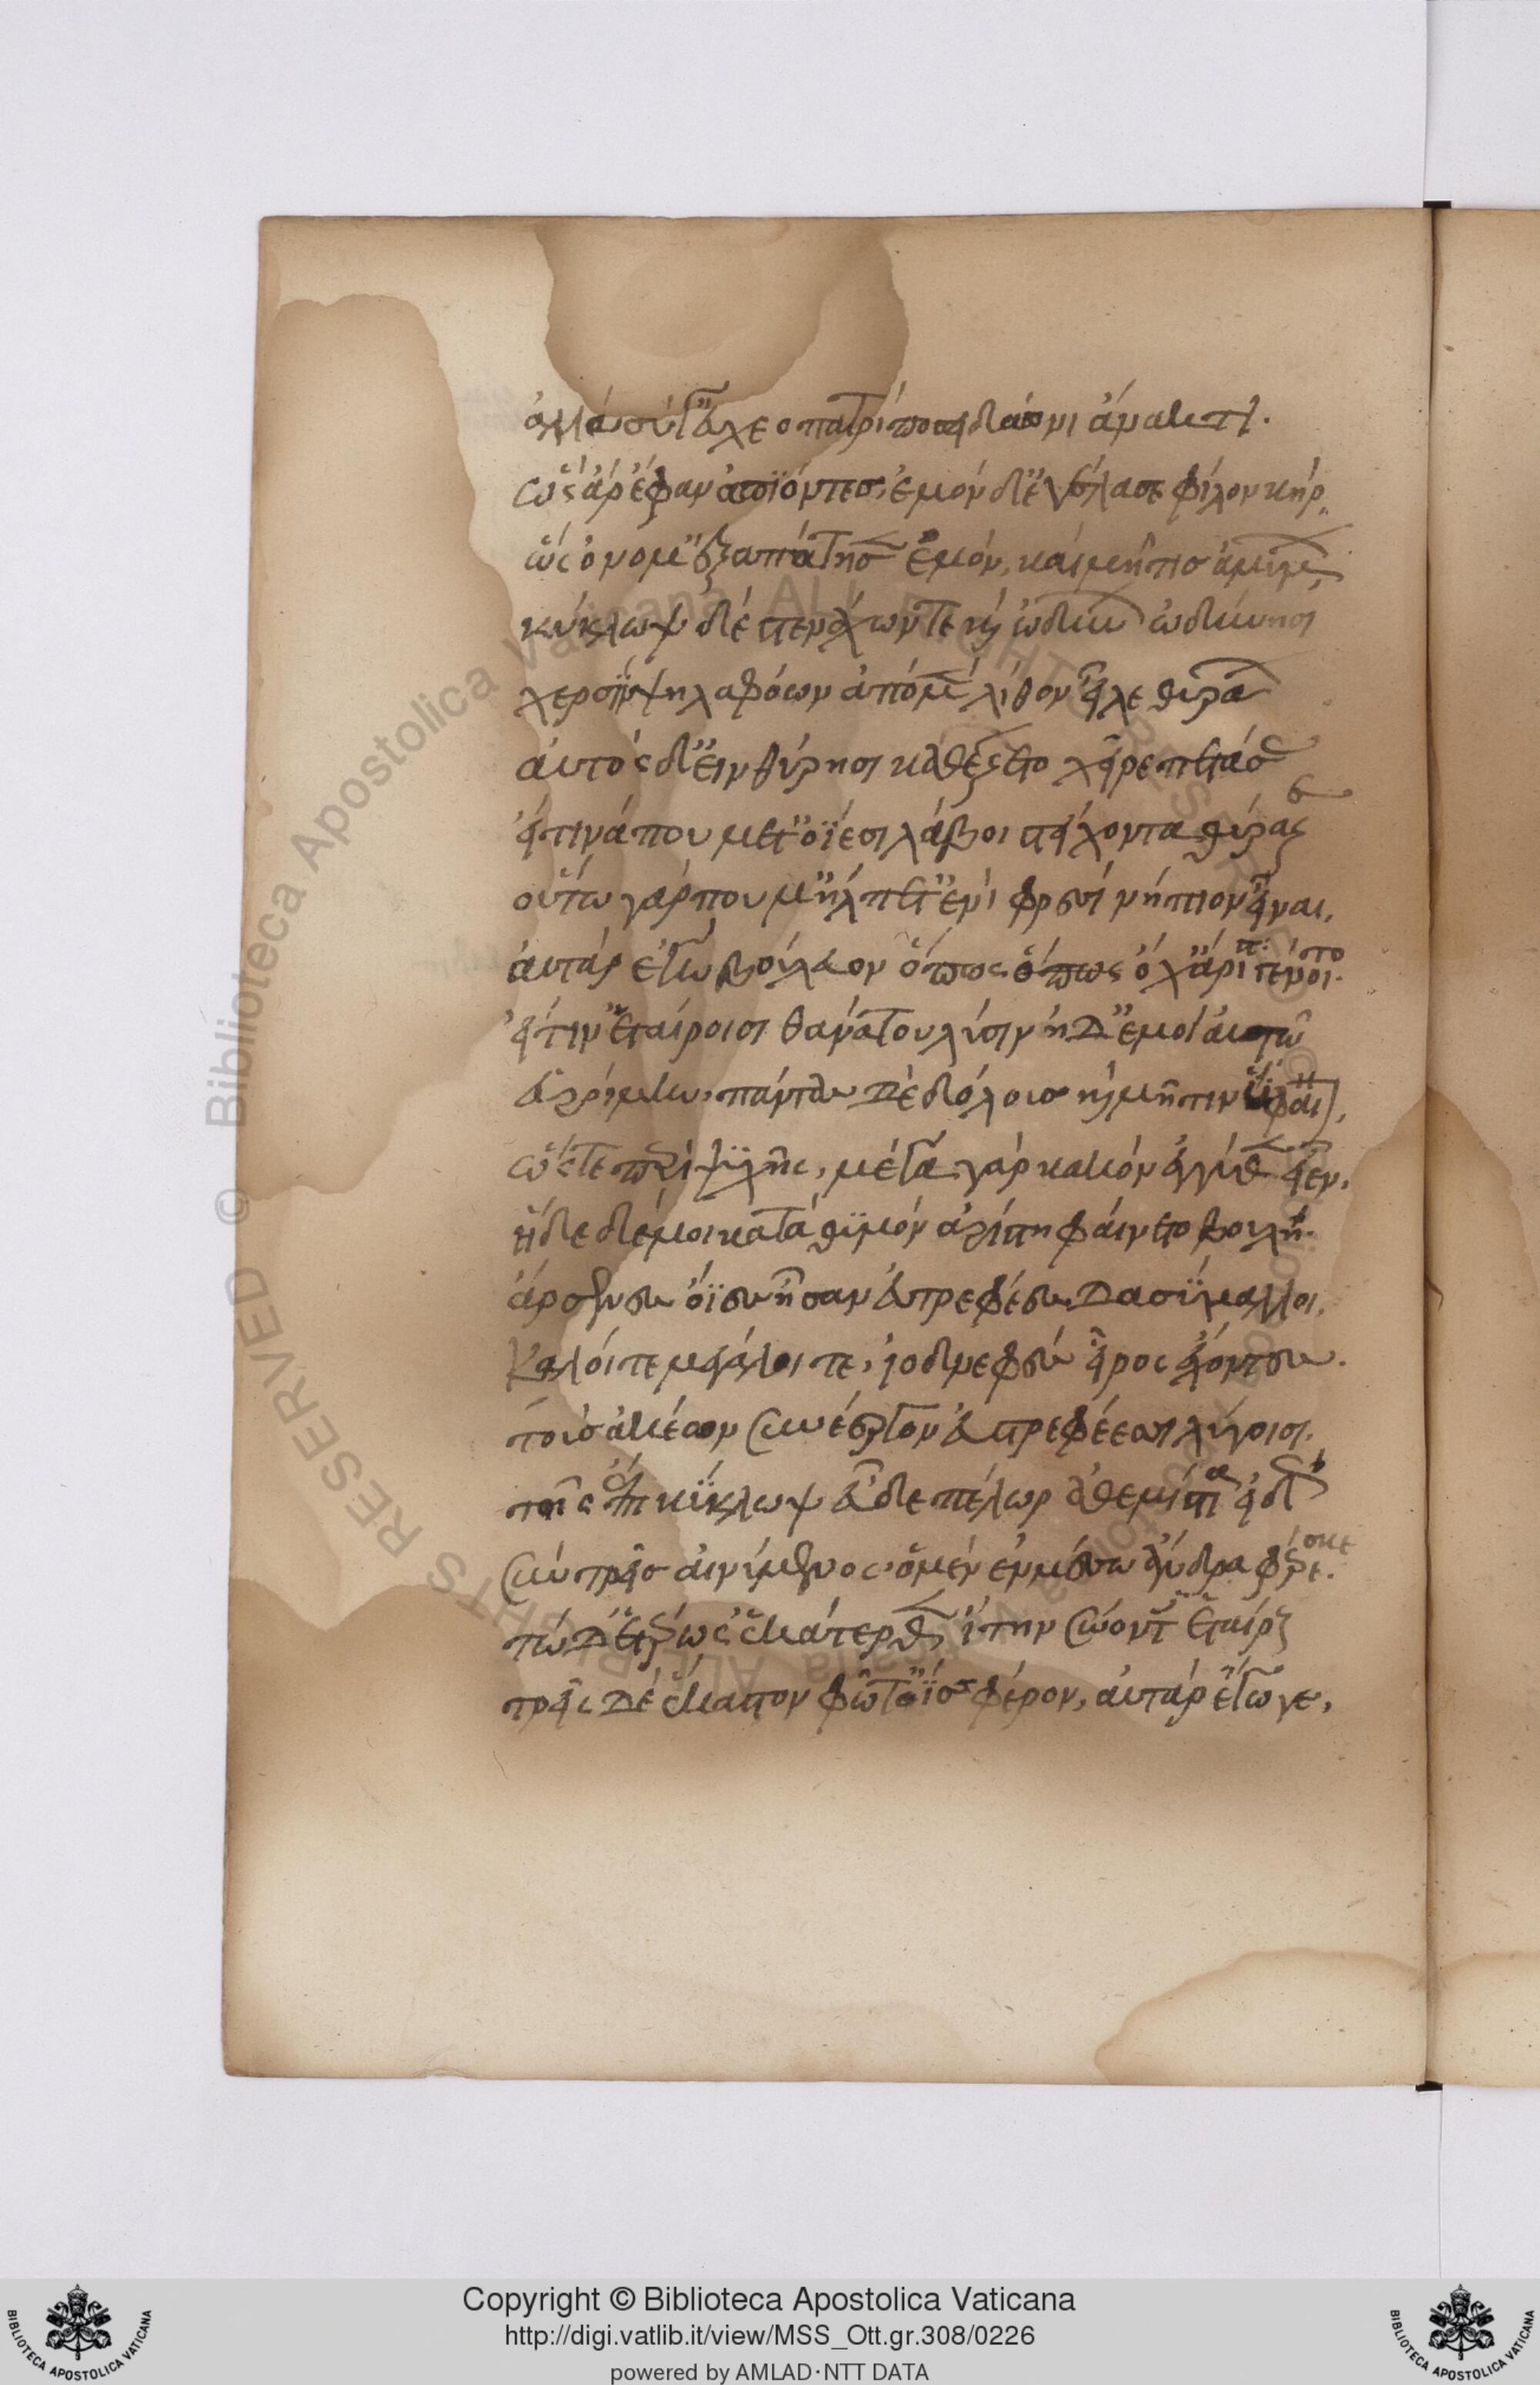 ἀλλὰ σύ γ' εὔχεο πατρὶ ποσειδάωνι ἄνακτι.
ὣς ἄρ' ἔφαν ἀπιόντες, ἐμὸν δ' ἐγέλασε φίλον κῆρ.
ὡς ὄνομ' ἐξαπάτησεν ἐμὸν, καὶ μῆτις ἀμύμων
κύκλωψ δὲ στενάχων τε καὶ ὠδίνων ὀδύνῃσι
χερσὶ ψηλαφόων ἀπὸ μὲν λίθον εἷλε θυράων
αὐτὸς δ' εἰν θύρῃσι καθέζετο χεῖρε πετάσας
εἴ τινά που μετ' ὄϊεσι λάβοι στείχοντα θύραζε
οὕτω γάρ που μ' ἤλπετ' ἐνὶ φρεσὶ νήπιον εἶναι,
αὐτὰρ ἐγὼ βούλευον ὅπως ὅπως ὄχ' ἄριστα γένοιτο.
εἴ τιν' ἑταίροισι θανάτου λύσιν ἠδ' ἐμοὶ αὐτῷ
εὑροίμην, πάντας δὲ δόλους καὶ μῆτιν ὕφαινον,
ὥστε περὶ ψυχῆς, μέγα γὰρ κακὸν ἐγγύθεν ἦεν,
ἥδε δέ μοι κατὰ θυμὸν ἀρίστη φαίνετο βουλή.
ἄρσενες ὄϊες ἦσαν ἐυτρεφέες δασύμαλλοι,
καλοί τε μεγάλοι τε, ἰοδνεφὲς εἶρος ἔχοντες.
τοὺς ἀκέων συνέεργον ἐυστρεφέεσσι λύγοισι.
τῇς ἔπι κύκλωψ εὗδε πέλωρ ἀθεμίστια εἰδώς
σύντρεις αἰνύμενος, ὁ μὲν ἐν μέσῳ ἄνδρα φέρεσκε.
τὼ δ' ἑτέρω ἑκάτερθεν ἴτην σώοντες ἑταίρους
τρεῖς δὲ ἕκαστον φῶτ' ὄϊες φέρον, αὐτὰρ ἔγωγε,
© Biblioteca Apostolica Vaticana ALL RIGHTS RESERVED
Copyright © Biblioteca Apostolica Vaticana
http://digi.vatlib.it/view/MSS_Ott.gr.308/0226
powered by AMLAD·NTT DATA
BIBLIOTECA APOSTOLICA VATICANA
BIBLIOTECA APOSTOLICA VATICANA